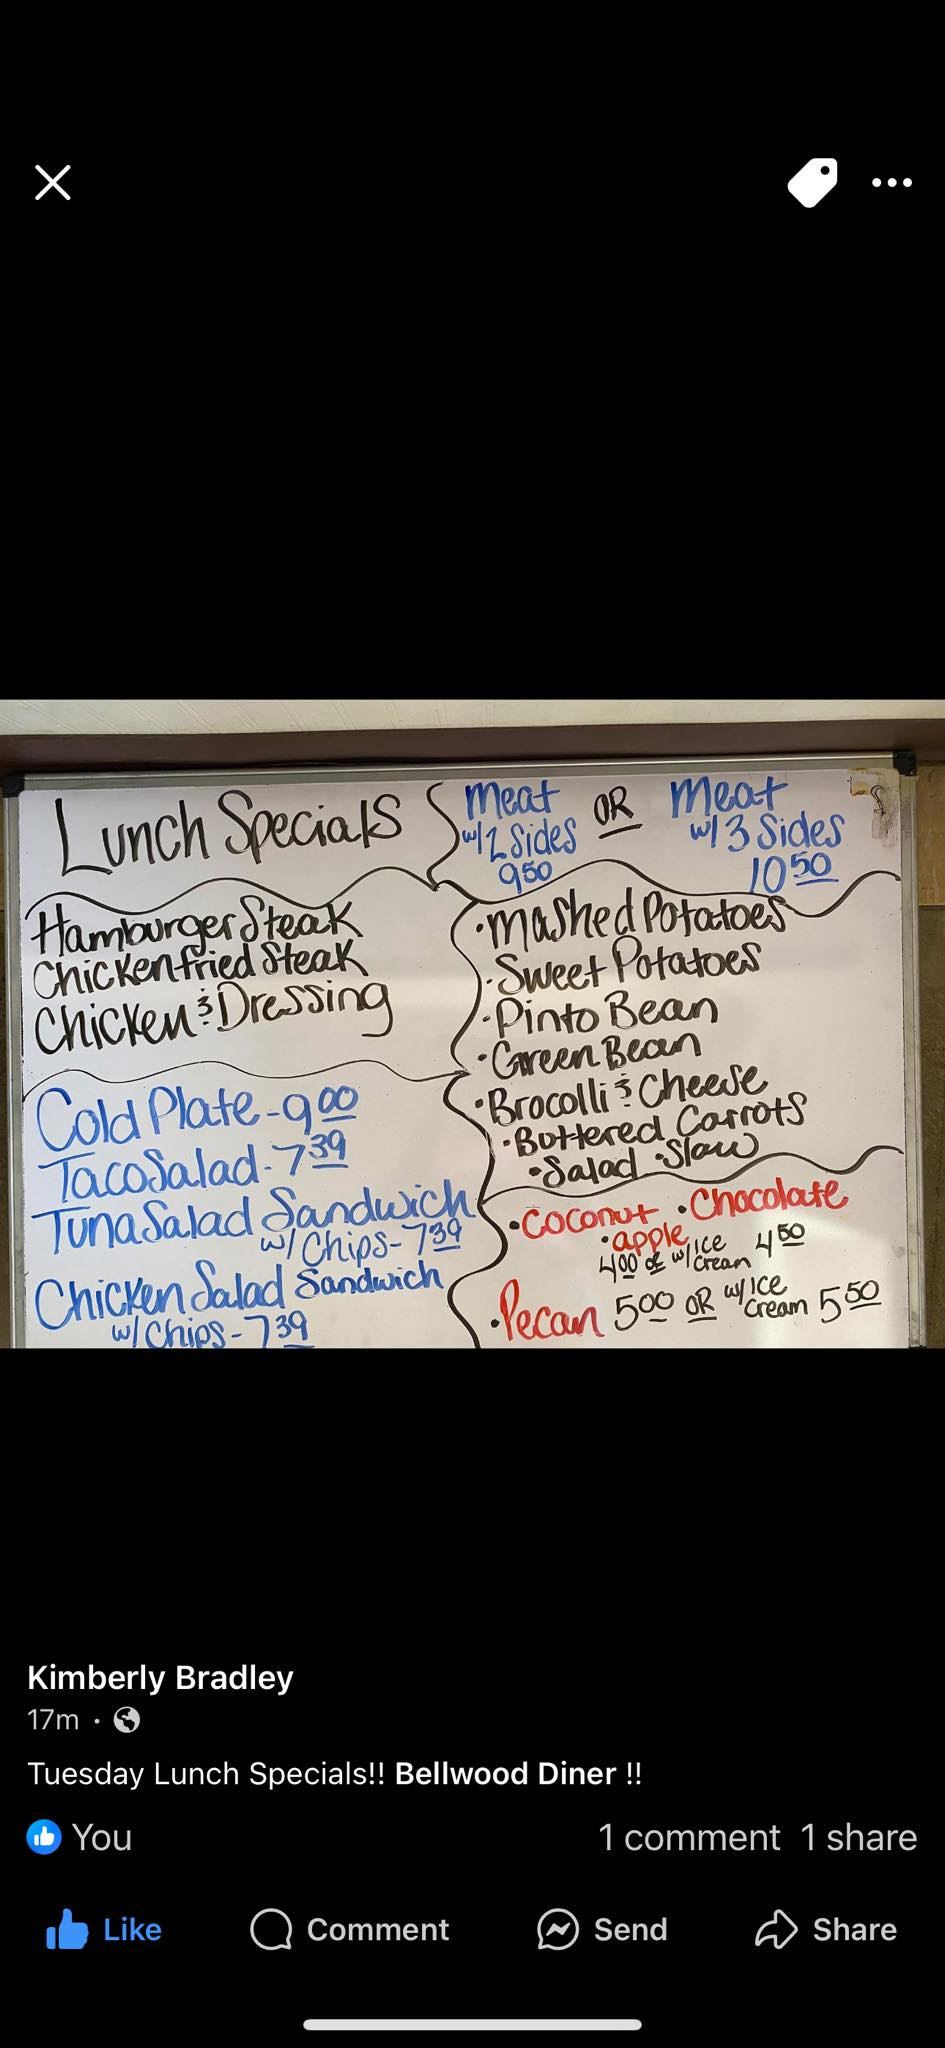 Lunch Specials
Meat
w/ 2 Sides
9 50
OR
Meat
w/ 3 Sides
10 50
Hamburger Steak
Chicken fried Steak
Chicken & Dressing
Cold Plate - 9 00
Taco Salad - 7 39
Tuna Salad Sandwich
w/ Chips - 7 39
Chicken Salad Sandwich
w/ Chips - 7 39
• Mashed Potatoes
• Sweet Potatoes
• Pinto Bean
• Green Bean
• Brocolli & Cheese
• Buttered Carrots
• Salad • Slaw
• Coconut • Chocolate
• apple
4 00 or w/ Ice Cream 4 50
• Pecan 5 00 OR w/ Ice Cream 5 50
Kimberly Bradley
17m ·
Tuesday Lunch Specials!! Bellwood Diner !!
You
1 comment 1 share
Like
Comment
Send
Share